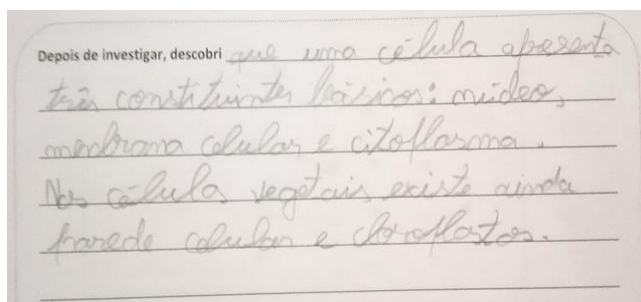 Depois de investigar, descobri que uma célula apresenta
três constituintes básicos: núcleo,
membrana celular e citoplasma.
Nas célula vegetais existe ainda
parede celular e cloroplastos.